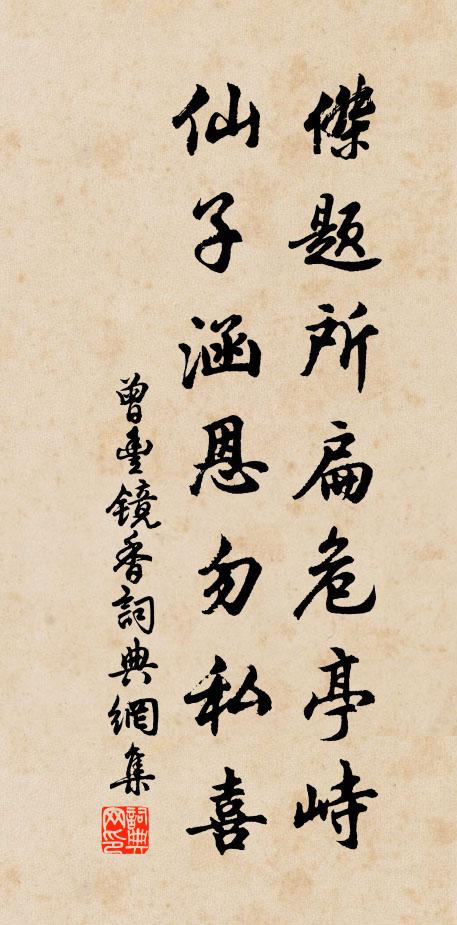 傑題所扁危亭峙
仙子涵恩勿私喜
曾豊镜香詞典網集
詞典网印